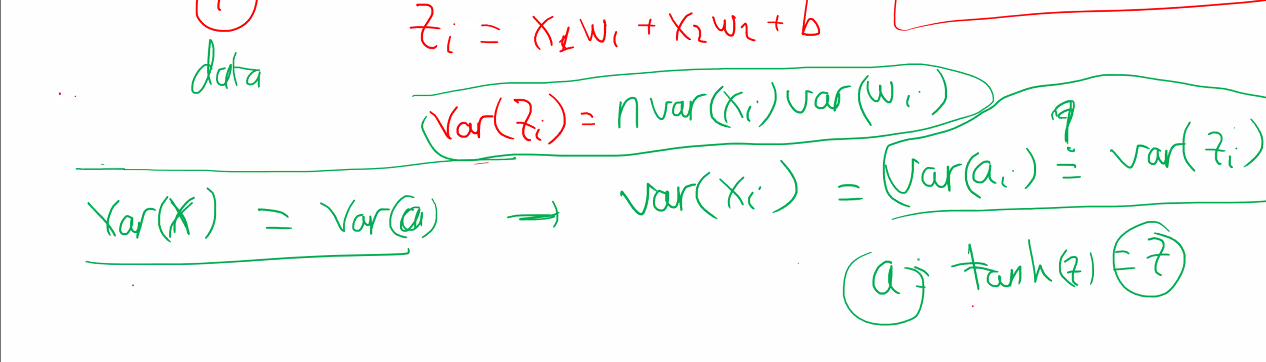 z_i = x_1 w_1 + x_2 w_2 + b
data
Var(z_i) = n var(x_i) var(w_i)
Var(x) = Var(a) → var(x_i) = var(a_i) ≟ var(z_i)
a = tanh(z) = z